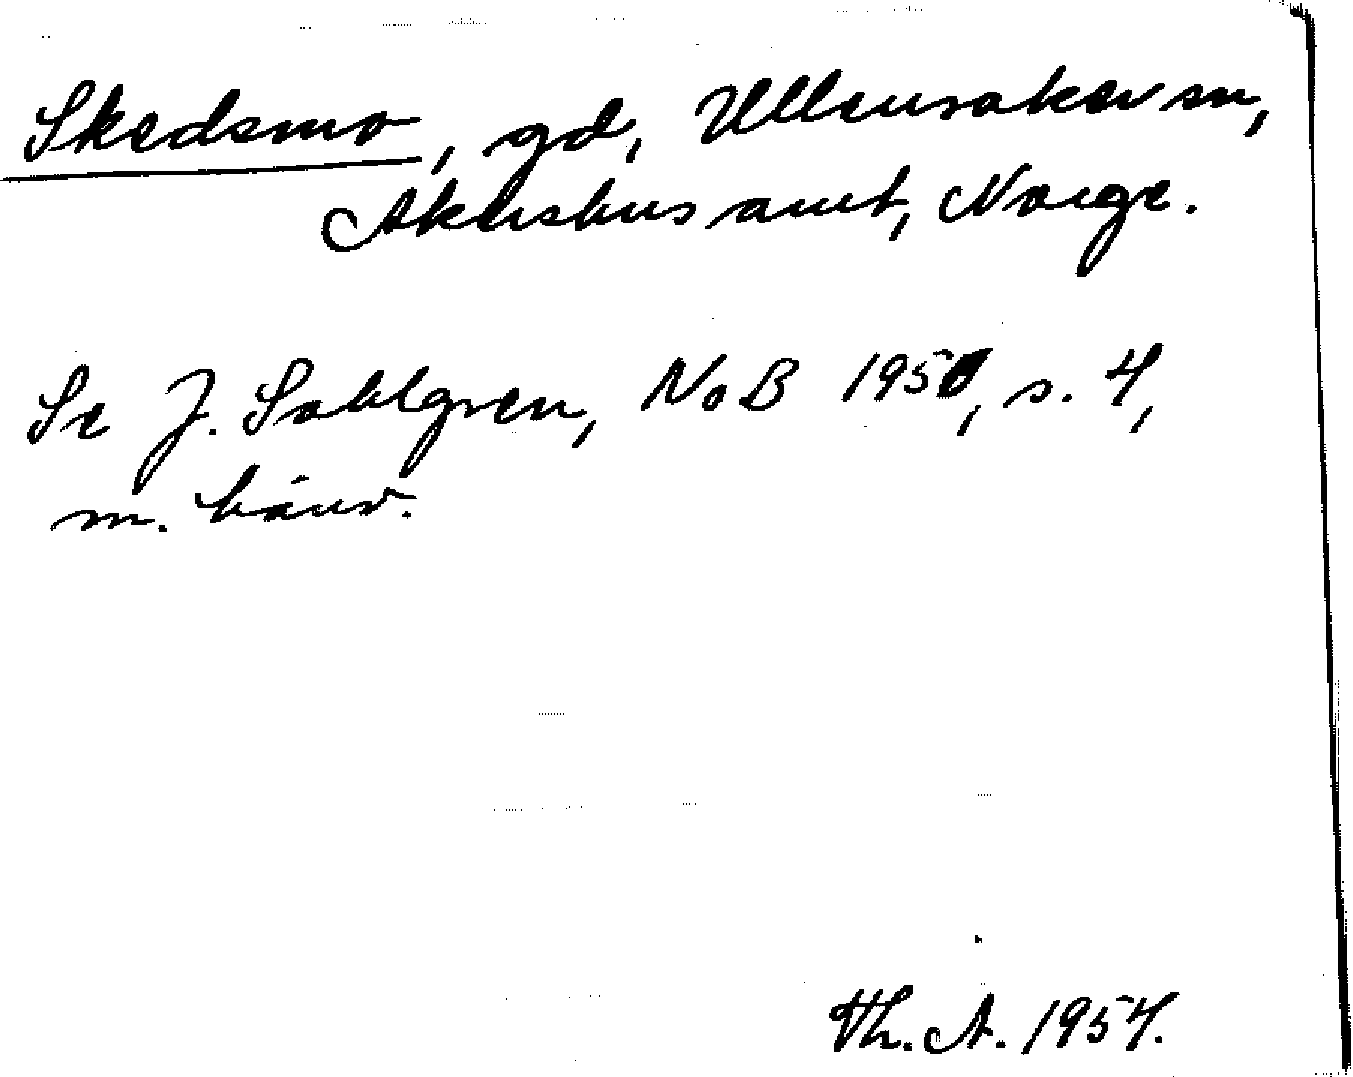 Skedsmo, gd, Ullensaker sn,
Akershus amt, Norge.
Se J. Sahlgren, NoB 1950, s. 4,
m. hänv.
Th. A. 1954.